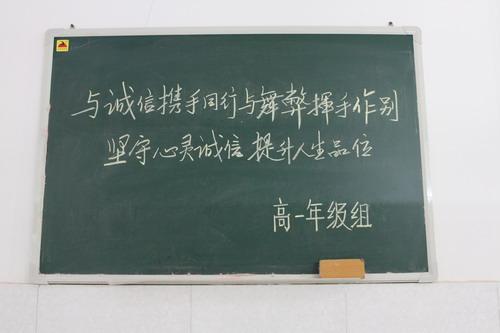 与诚信携手同行与舞弊揮手作别
坚守心灵诚信 提升人生品位
高一年级组